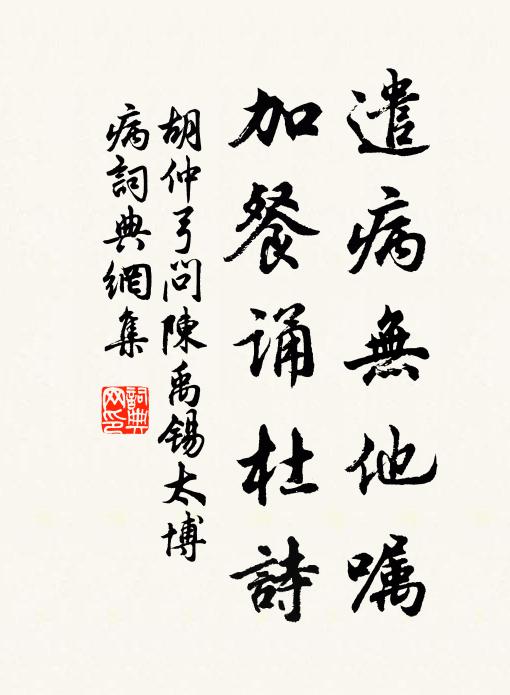 遣病無他嘱
加餐誦杜詩
胡仲弓問陳禹锡太博
病詞典網集
詞典
网印